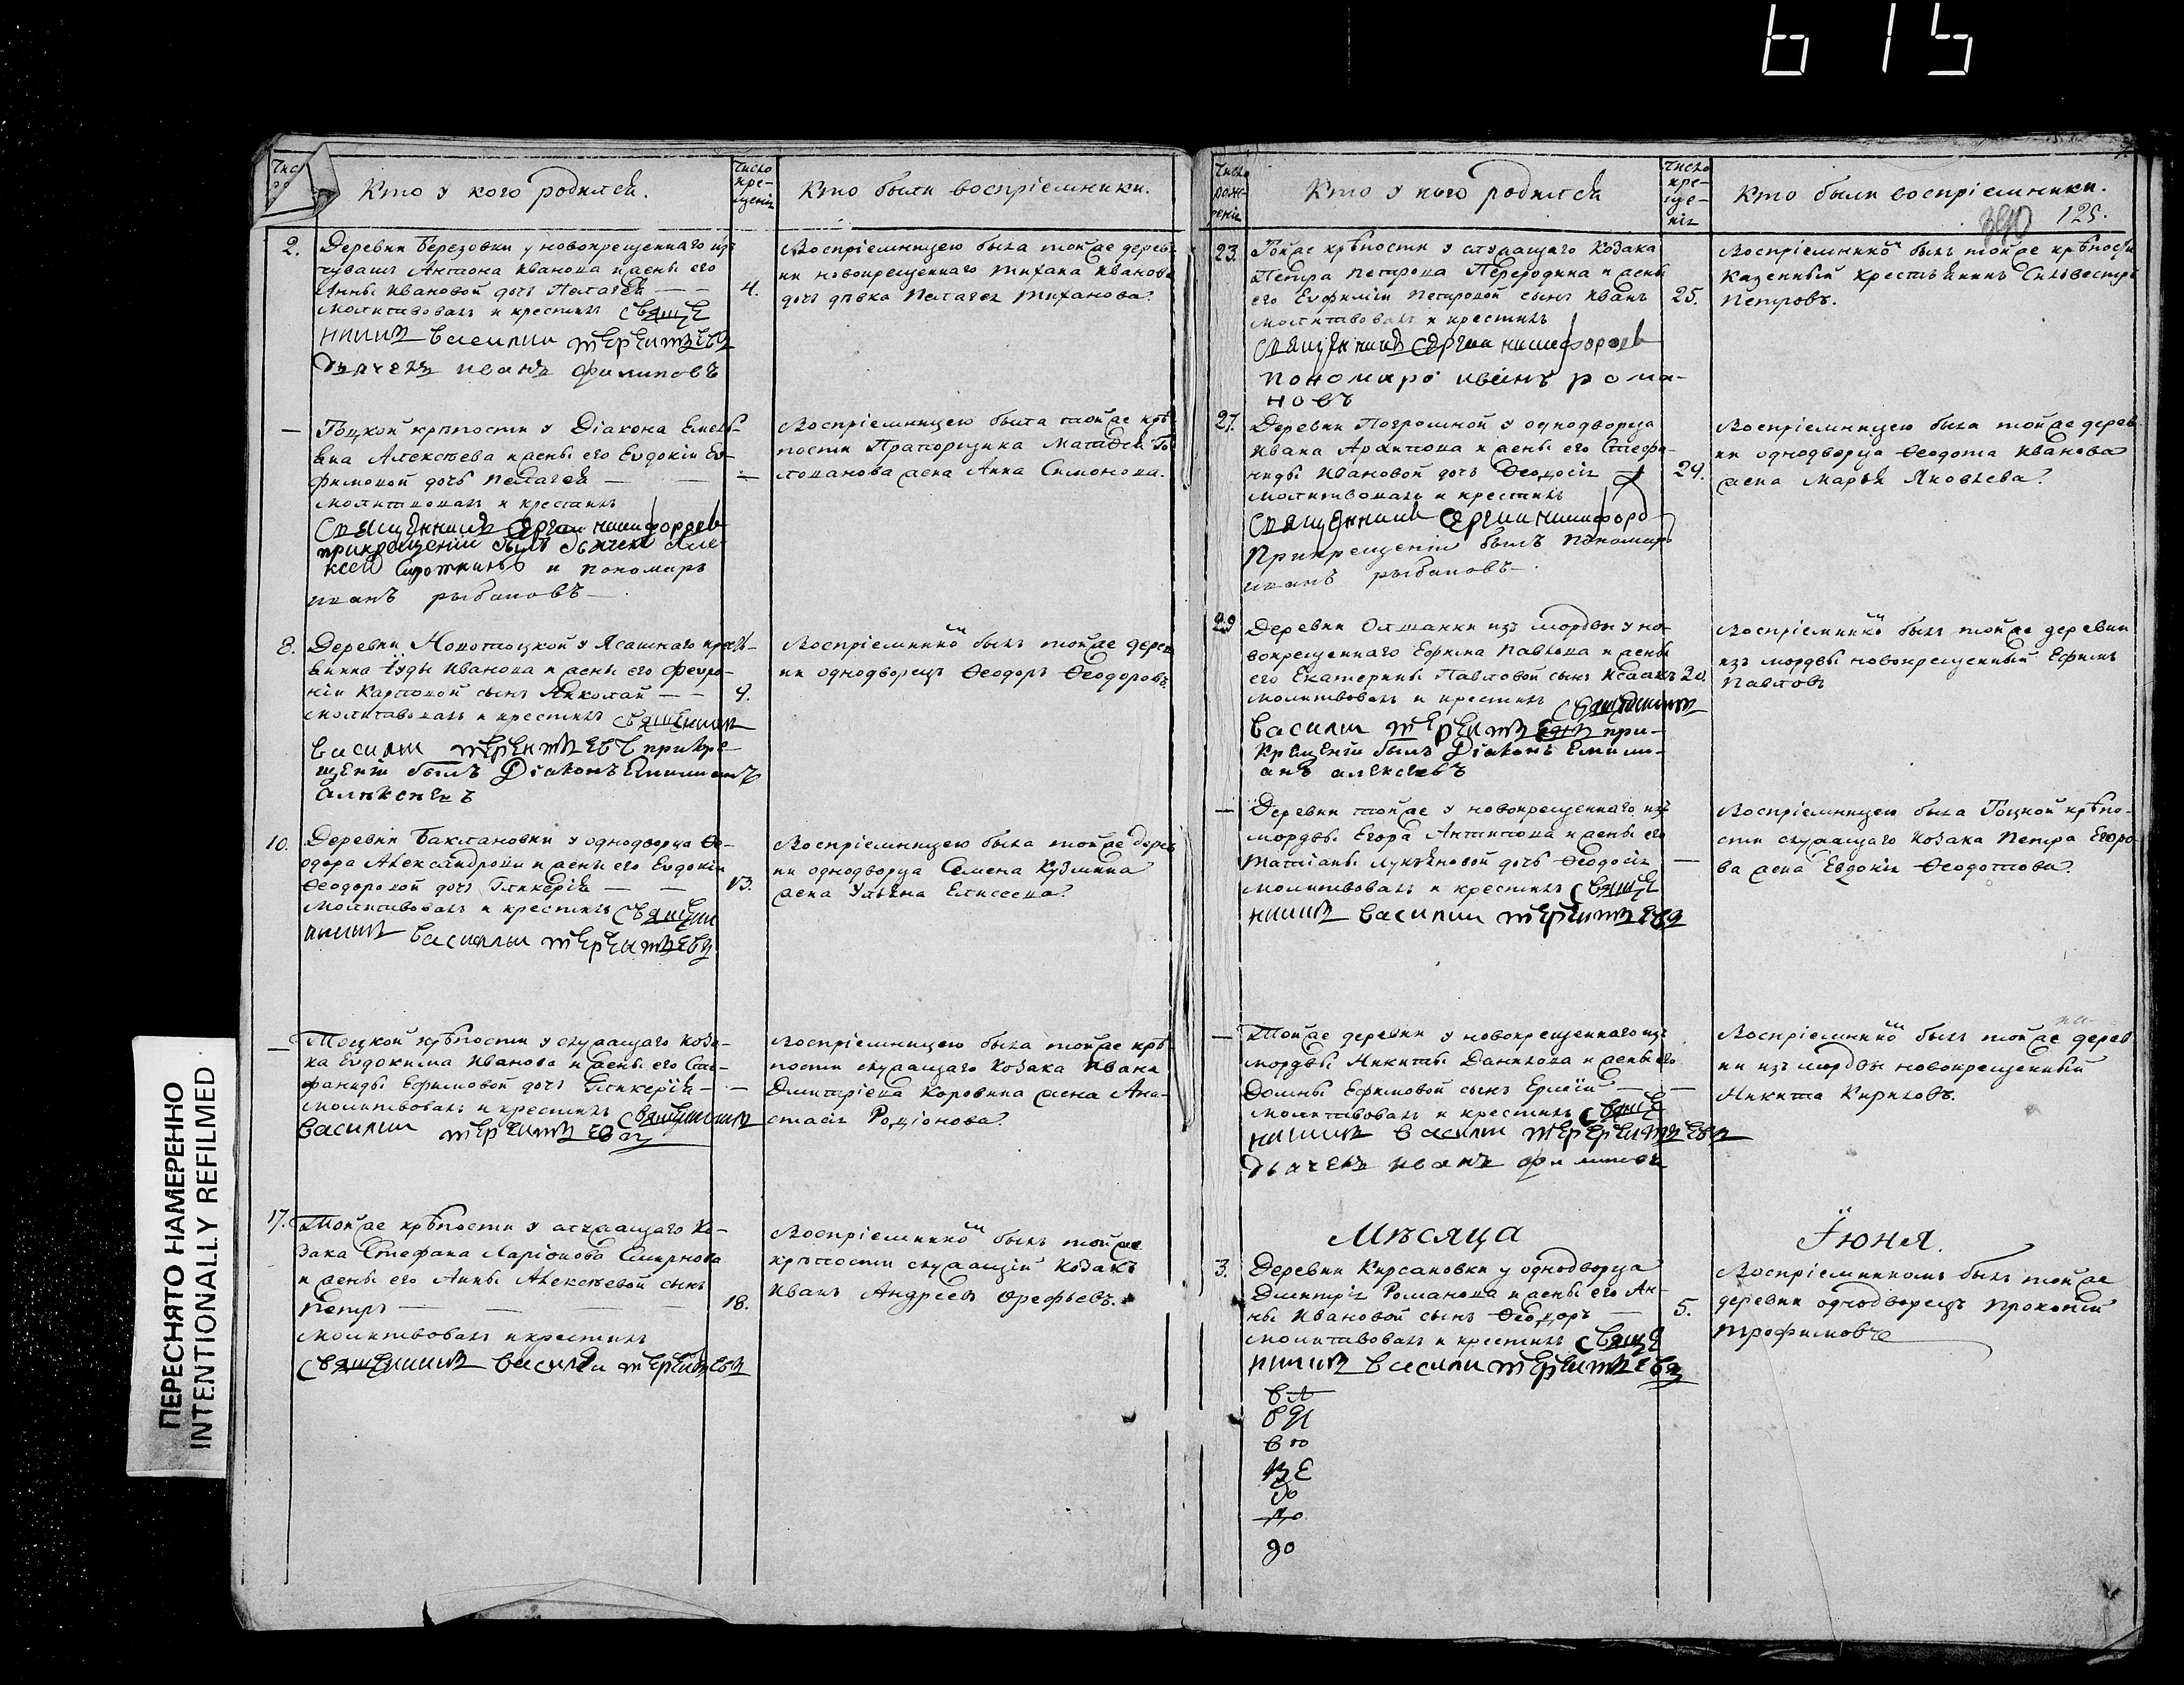 615
Число
Кто у кого родился.
Число
кре-
щенія
Кто были воспріемники.
2.
Деревни Березовки у новокрещеннаго изъ
чувашъ Антона Иванова и жены его
Анны Ивановой дочь Пелагея — —
молитвовалъ и крестилъ Свяще
нникъ Василии Терентьевъ
дьячекъ иванъ филиповъ
4.
Воспріемницею была той же дерев-
ни новокрещеннаго Михаила Иванова
дочь дѣвка Пелагея
—
Тоцкой крѣпости у Діакона Емель-
яна Алексѣева и жены его Евдокіи Ев-
фимовой дочь Пелагея — —
молитвовалъ и крестилъ
Священникъ Сергии никифоровъ
прикрещеніи былъ дьячекъ Але-
ксей и пономаръ
иванъ рыбаковъ
Воспріемницею была той же крѣ-
пости Прапорщика
жена Анна Симонова.
8.
Деревни Новотоцкой у Ясашнаго крест-
янина Іуды Иванова и жены его Февро-
ніи Карповой сынъ Николай — —
молитвовалъ и крестилъ Священникъ
Василии Терентьевъ прикре
щеніи былъ Діаконъ Емилианъ
алѣксеевъ
9.
Воспріемникомъ былъ той же дерев
ни однодворецъ Ѳеодоръ Ѳеодоровъ.
10.
Деревни Баклановки у однодворца Ѳе-
одора Александрова и жены его Евдокіи
Ѳеодоровой дочь Гликерія — —
молитвовалъ и крестилъ Священ
никъ Василии Терентьевъ
13.
Воспріемницею была той же дерев
ни однодворца Семена Кузмина
жена Ульяна Елисеева.
—
Тоцкой крѣпости у служащаго Коза-
ка Евдокима Иванова и жены его Сте-
фаниды Ефимовой дочь Гликерія —
молитвовалъ и крестилъ Священникъ
Василии Терентьевъ
—
Воспріемницею была той же крѣ-
пости служащаго Козака Ивана
Дмитріева Коровина жена Ана-
стасія Родіонова.
17.
Той же крѣпости у служащаго Ко-
зака Стефана Ларіонова Смирнова
и жены его Анны Алексѣевой сынъ
Петръ — — —
молитвовалъ и крестилъ
Священникъ Василии Терентьевъ
18.
Воспріемникомъ былъ той же
крѣпости служащій Козакъ
Иванъ Андреевъ Орефьевъ.
ПЕРЕСНЯТО НАМЕРЕННО
INTENTIONALLY REFILMED
Число
рож-
денія
Кто у кого родился
Число
кре-
ще-
нія
Кто были воспріемники.
390 125.
23.
Той же крѣпости у служащаго Козака
Петра Петрова Переродина и жены
его Евфиміи Петровой сынъ Иванъ
молитвовалъ и крестилъ
Священникъ Сергии никифоровъ
пономаръ иванъ рома-
новъ
25.
Воспріемникомъ былъ той же крѣпости
Казенный крестьянинъ Сильвестръ
Петровъ.
27.
Деревни Погромной у однодворца
Ивана Архипова и жены его Стефа-
ниды Ивановой дочь Ѳеодосія
молитвовалъ и крестилъ
Священникъ Сергии никифоров
Прикрещеніи былъ Пономаръ
иванъ рыбаковъ
29.
Воспріемницею была той же дерев-
ни однодворца Ѳедота Иванова
жена Марья Яковлева.
29
Деревни Ольшанки изъ мордвы у но-
вокрещеннаго Ефима Павлова и жены
его Екатерины Павловой сынъ Исаакъ
молитвовалъ и крестилъ Священникъ
Василии Терентьевъ при-
крещеніи былъ Діаконъ Емили-
анъ алексеевъ
Воспріемникомъ былъ той же деревни
изъ мордвы новокрещенный Ефимъ
Павловъ
—
Деревни той же у новокрещеннаго изъ
мордвы Егора Антипова и жены его
Татіаны Лукьяновой дочь Ѳеодосія
молитвовалъ и крестилъ Свяще
нникъ Василии Терентьевъ
—
Воспріемницею была Тоцкой крѣпо-
сти служащаго Козака Петра Егоро-
ва жена Евдокія Ѳеодотова.
—
Той же деревни у новокрещеннаго изъ
мордвы Никиты Данилова и жены его
Домны Ефимовой сынъ Ермій —
молитвовалъ и крестилъ Свяще
нникъ Василии Терентьевъ
дьячекъ иванъ филиповъ
—
Воспріемникомъ былъ той же дерев
ни изъ мордвы новокрещенный
Никита Кириловъ.
Мѣсяца Іюня.
3.
Деревни Кирсановки у однодворца
Дмитрія Романова и жены его Ан-
ны Ивановой сынъ Ѳеодоръ —
молитвовалъ и крестилъ Свяще
нникъ Василии Терентьевъ
5.
Воспріемникомъ былъ той же
деревни однодворецъ Прокопій
Трофимовъ